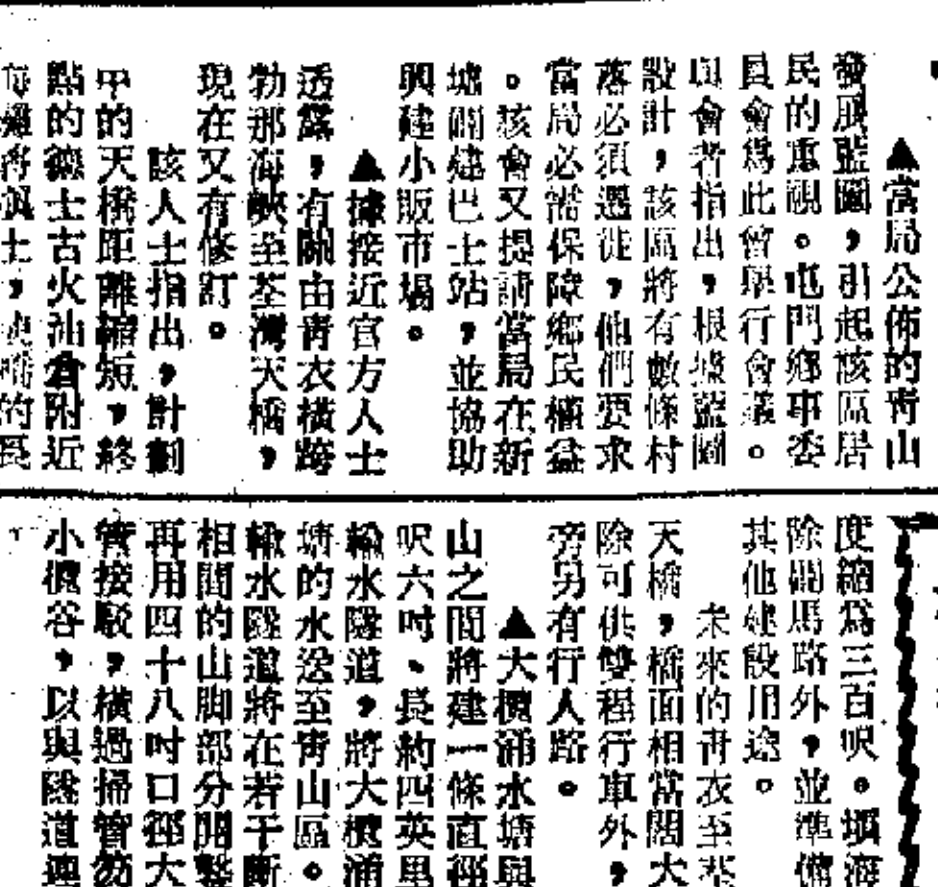 ▲當局公佈的青山
發展藍圖，引起該區居
民的重視。屯門鄉事委
員會爲此曾舉行會議。
與會者指出，根據藍圖
設計，該區將有數條村
落必須遷徙，他們要求
當局必需保障鄉民權益
。該會又提請當局在新
墟闢建巴士站，並協助
興建小販市場。
▲據接近官方人士
透露，有關由青衣橫跨
勃那海峽至荃灣天橋，
現在又有修訂。
該人士指出，計劃
中的天橋距離縮短，終
點的德士古火油倉附近
士，的長
度縮爲三百呎。塡海
除闢馬路外，並準備
其他建設用途。
未來的青衣至荃
天橋，橋面相當闊大
除可供雙程行車外，
旁另有行人路。
▲大欖涌水塘與
山之間將建一條直徑
呎六吋、長約四英里
輸水隧道，將大欖涌
塘的水送至青山區。
輸水隧道將在若干斷
相間的山脚部分開鑿
再用四十八吋口徑大
管接駁，橫過掃管笏
小欖谷，以與隧道連